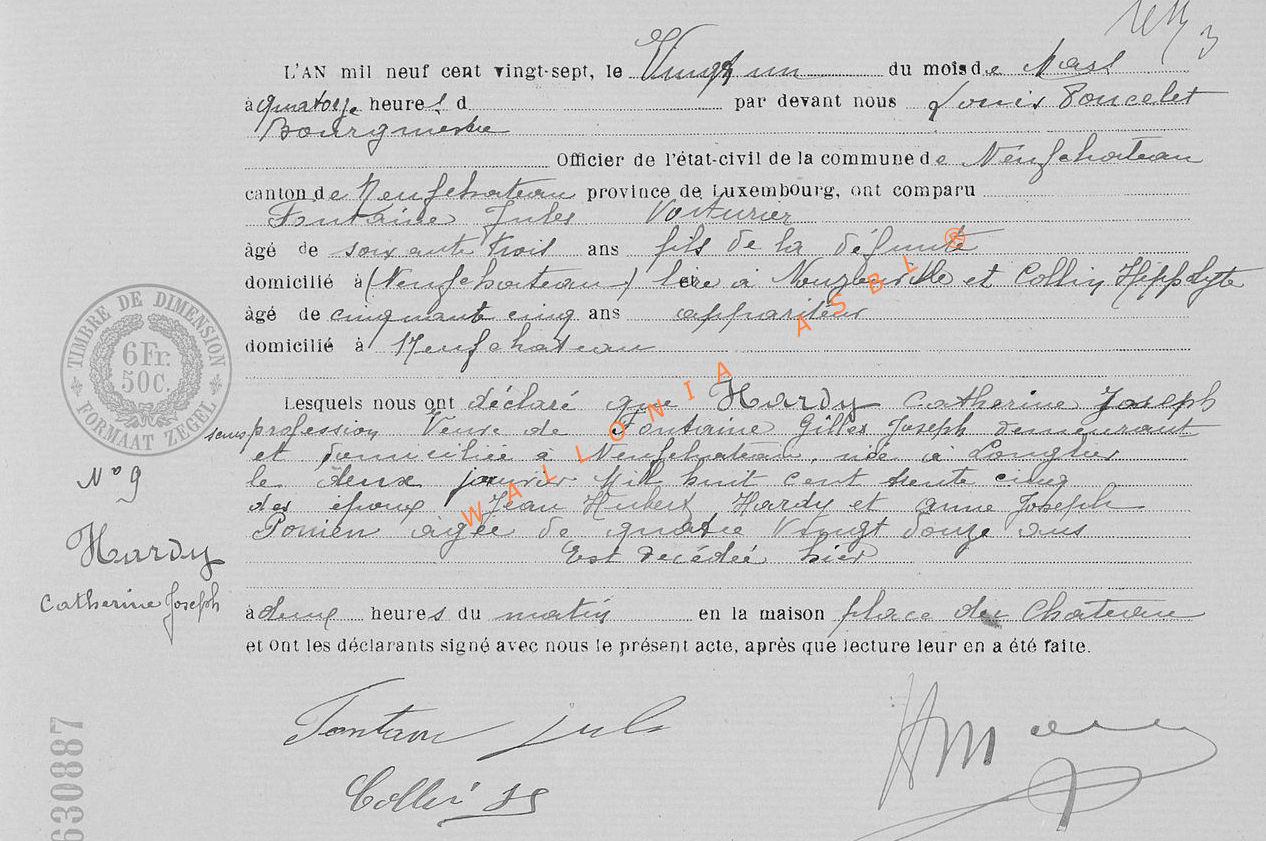 L'AN mil neuf cent vingt-sept, le Vingt un du mois de Mars
à quatorze heures d par devant nous Louis Poncelet
Bourgmestre
Officier de l'état-civil de la commune de Neufchateau
canton de Neufchateau province de Luxembourg, ont comparu
Fontaine Jules Voiturier
âgé de soixante trois ans fils de la défunte
domicilié à (Neufchateau) à Nouzonville et Collin Hippolyte
âgé de cinquante cinq ans appariteur
domicilié à Neufchateau
Lesquels nous ont déclaré que Hardy Catherine Joseph
sans profession Veuve de Fontaine Gilles Joseph demeurant
et domiciliée à Neufchateau, née à Longlier
le deux janvier Mil huit cent trente cinq
des époux Jean Hubert Hardy et Anne Joseph
agée de quatre Vingt douze ans
Est décédée hier
à deux heures du matin en la maison place du Chateau
et ont les déclarants signé avec nous le présent acte, après que lecture leur en a été faite.
TIMBRE DE DIMENSION
6 Fr.
50 C.
FORMAAT ZEGEL
N° 9
Hardy
Catherine Joseph
630887
WALLONIA ASBL ®